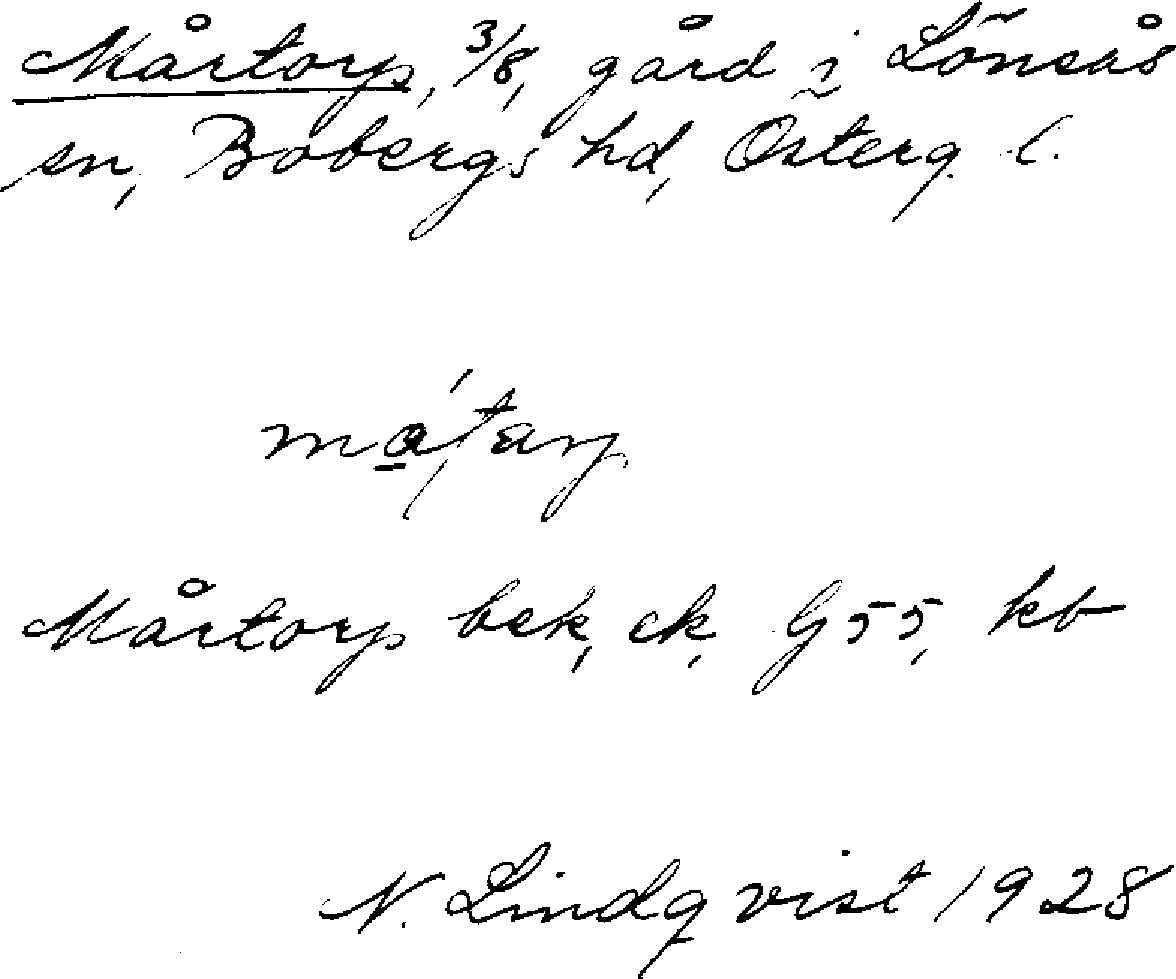 Mårtorp, 3/8, gård i Lönsås
sn, Bobergs hd, Österg. l.
Mårtorp bek, ek, G55, kb
N. Lindqvist 1928